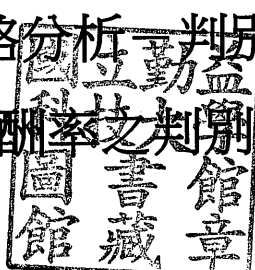 分析－判別
酬率之判別
國立勤益
科技大學
圖書館
館藏章